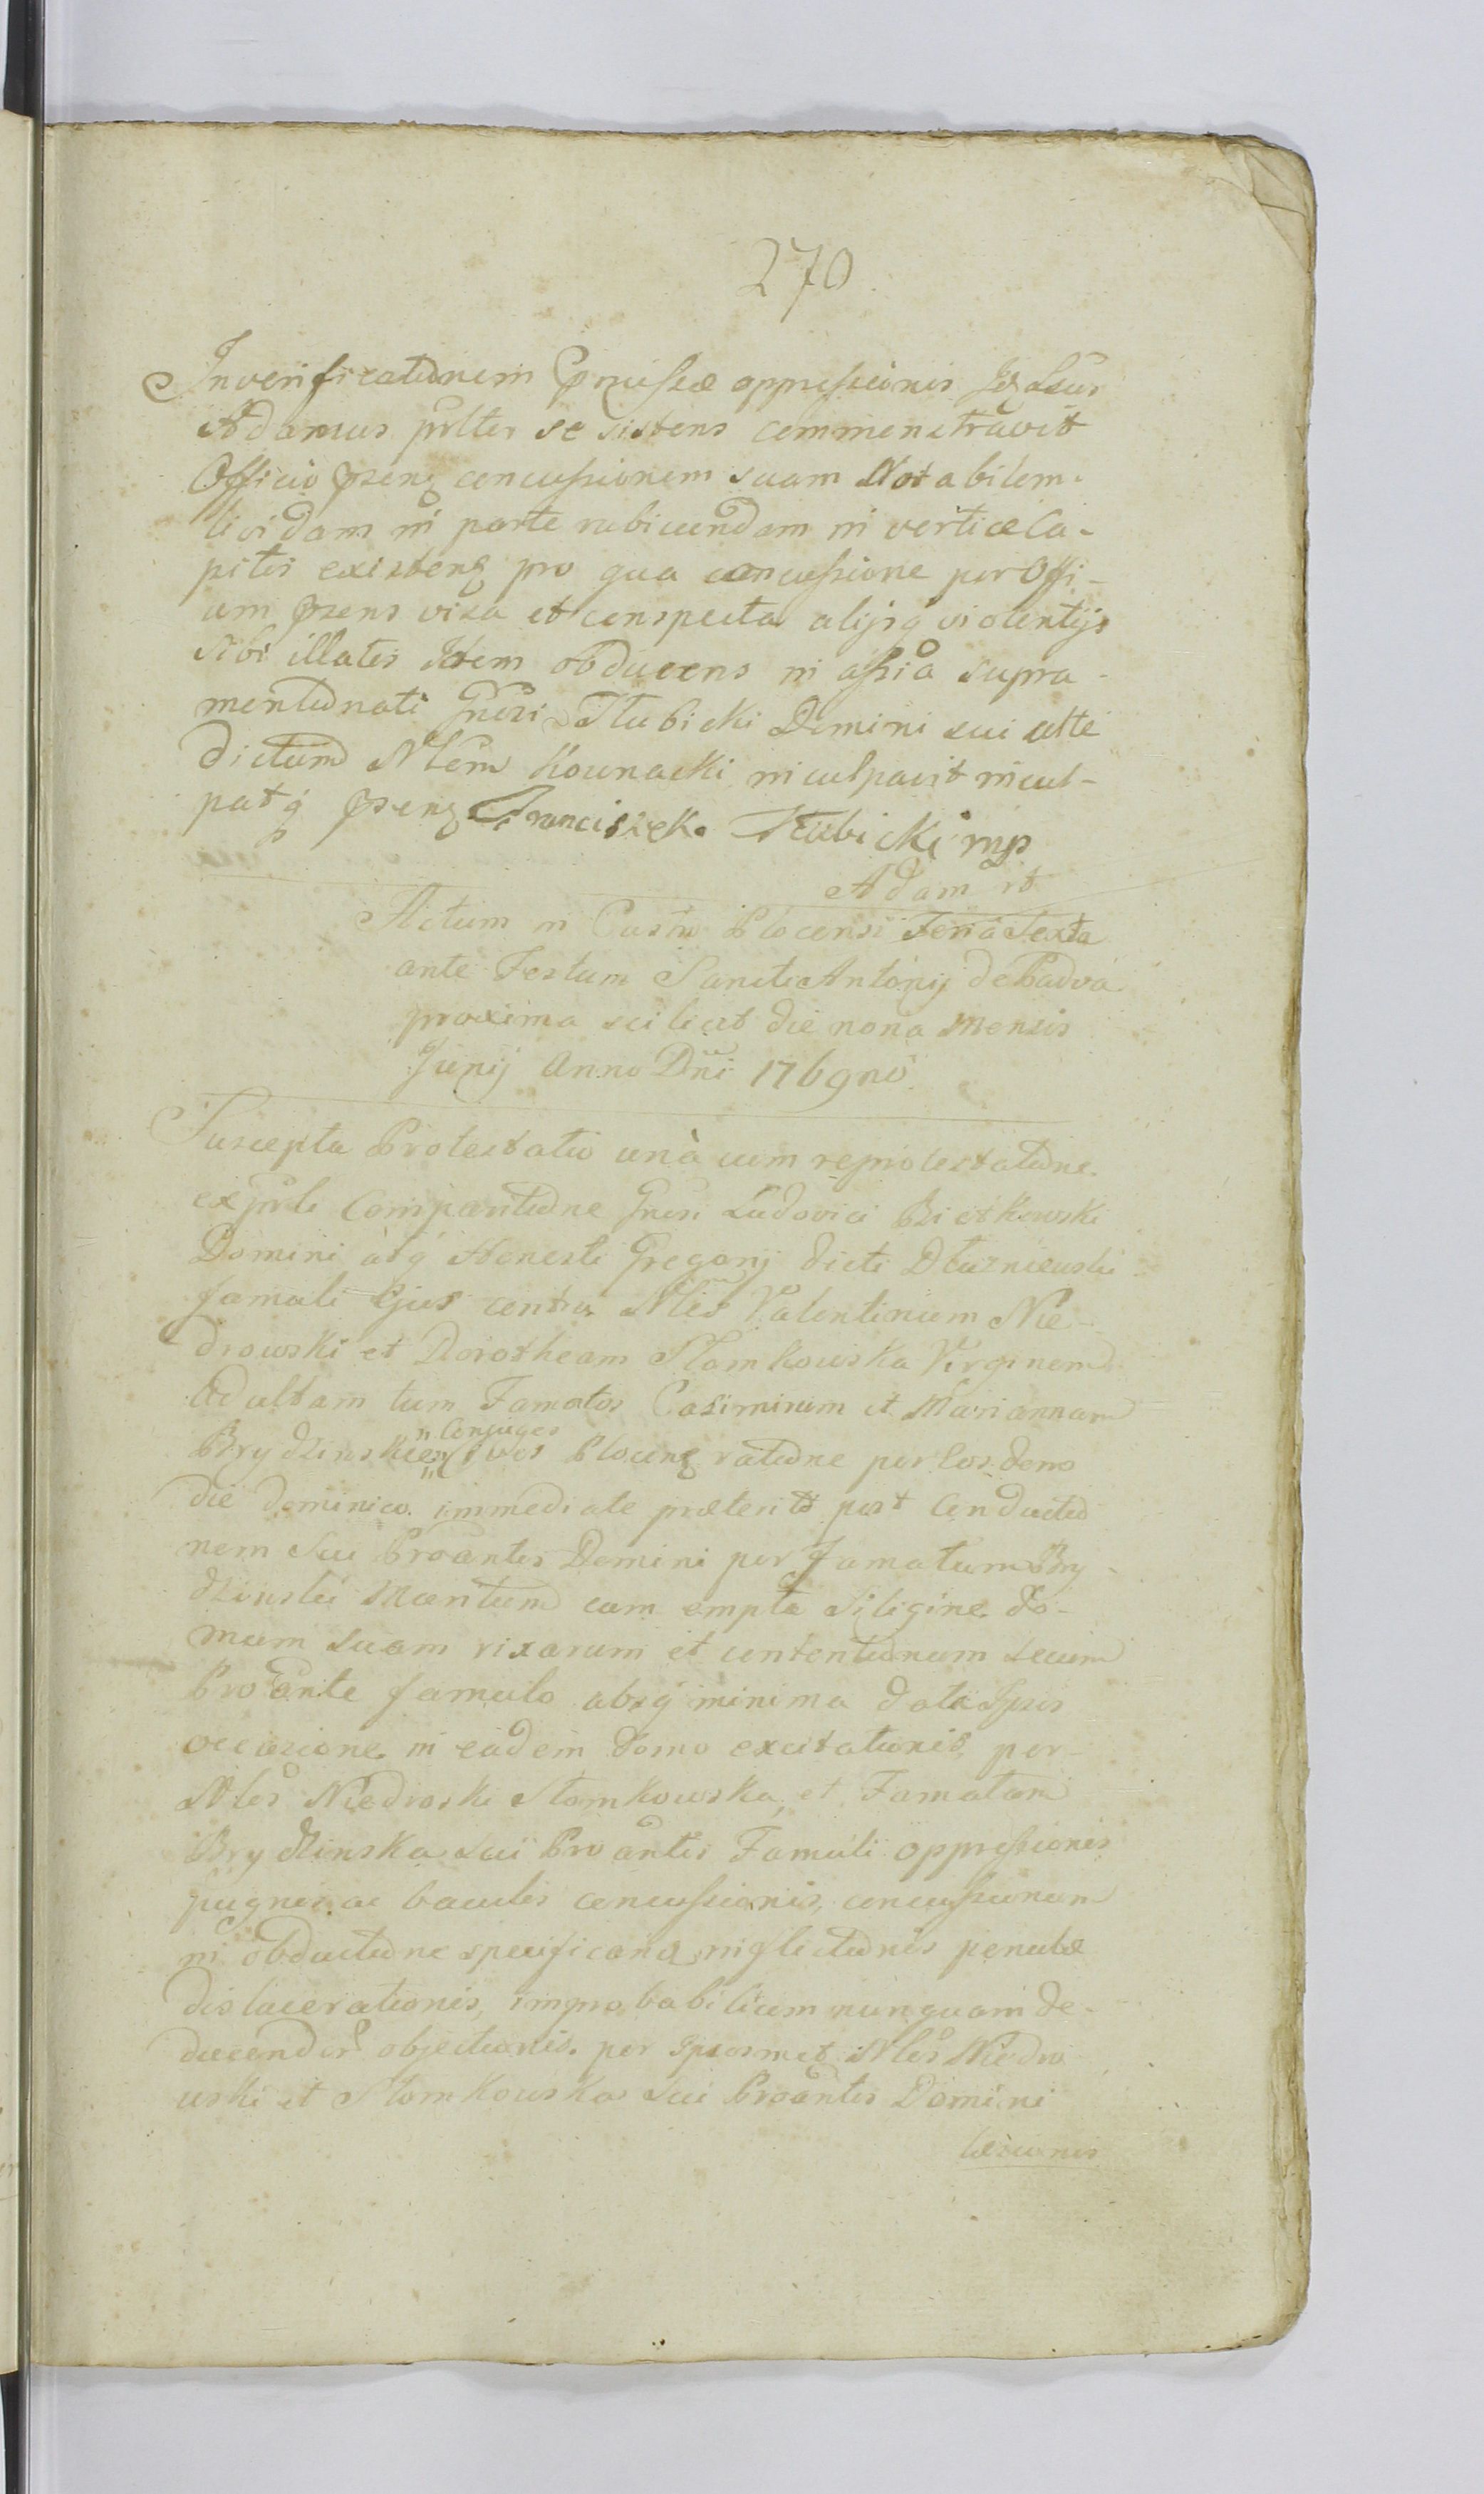 270
Inverificationem Præmissæ oppressionis Idem
Adamus psltr se sistens commenstravit
Officio præsenz concussionem suam Notabilem
lividam in parte rubicundam in vertice Ca-
pitis existenz pro qua concussione per Offi-
um præsens visa et conspecta alijsq violentijs
sibi illatis Idem obducens in assia supra
mentionati Gnosi Słubicki Domini sui alte
dictum Nlem Kownacki inculpavit incul-
patq præsenz Franciszek Słubicki mp
Adam rt
Actum in Castro Plocensi Feria Sexta
ante Festum Sancti Antonij de Padva
proxima scilicet die nona Mensis
Junij Anno Dni 1769no
Suscepta Protestatio unà cum reprotestatione
ex psli Comparitione Gnosi Ludovici Bietkowski
Domini atq Honesti Gregorij dicti Dłużniewski
famuli Ejus contra Nles Valentinum Nie-
drowski et Dorotheam Słomkowska Virginem
Adultam tum Famatos Casimirum et Mariannam
Brydzinskie "Conjuges" Cives Plocenz ratione per Eosdem
die dominico immediate præterito post Conductio
nem Sui Proantis Domini per Famatum Bry-
dzinski Maritum cum empta Siligine do-
mum suam rixarum et contentionum secum
Proante famulo absq minima data Ipsis
occasione in eadem domo excitationis, per
Nles Niedroski Słomkowska, et Famatam
Brydzinska sui Proantis Famuli oppressionis
pugnis ac baculis concussionis, concussionum
in obductione specificanz inflictionis penulæ
dislacerationis, improbabilium nunquam de-
ducendor objectionis. per Ipsosmet Nles Niedro
wski et Słomkowska sui Proantis Domini
læsionis